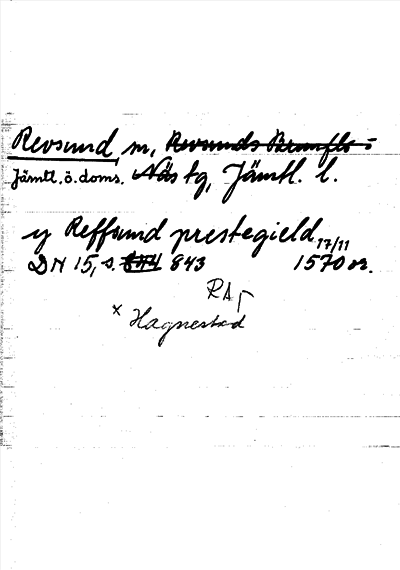 Revsund sn, Revsunds Brunflo o
Jämtl. ö. doms. Näs tg, Jämtl. l.
y Reffsund prestegield 17/11
DN 15, s. 843 1570 or.
RA
x Hagnestad